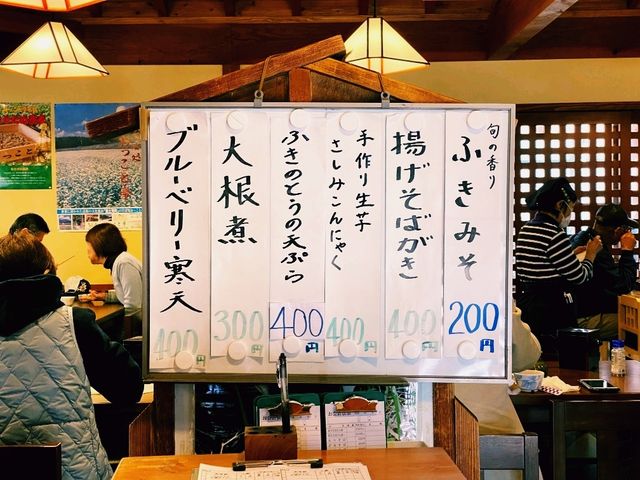 旬の香り
ふきみそ
200円
揚げそばがき
400円
手作り生芋
さしみこんにゃく
400円
ふきのとうの天ぷら
400円
大根煮
300円
ブルーベリー寒天
400円